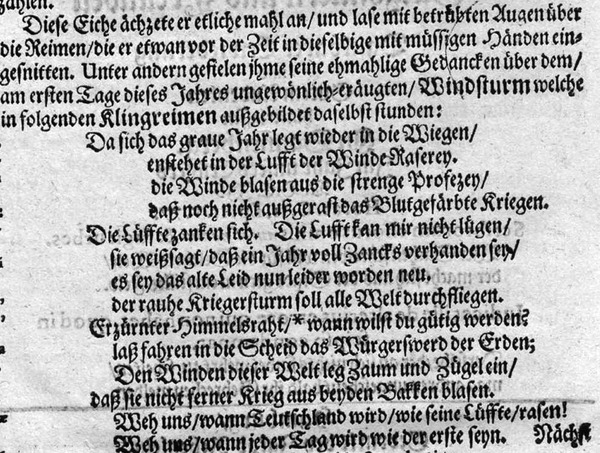 zählen.
Diese Eiche ächzete er etliche mahl an/ und lase mit betrübten Augen über
die Reimen/ die er etwan vor der Zeit in dieselbige mit müssigen Händen ein-
gesnitten. Unter andern gefielen jhme seine ehmahlige Gedancken über dem/
am ersten Tage dieses Jahres ungewönlich-eräugten/ Windsturm welche
in folgenden Klingreimen außgebildet daselbst stunden:
Da sich das graue Jahr legt wieder in die Wiegen/
enstehet in der Lufft der Winde Raserey.
die Winde blasen aus die strenge Profezey/
daß noch nicht außgerast das Blutgefärbte Kriegen.
Die Lüffte zanken sich. Die Lufft kan mir nicht lügen/
sie weißsagt/ daß ein Jahr voll Zancks verhanden sey/
es sey das alte Leid nun leider worden neu.
der rauhe Kriegersturm soll alle Welt durchfliegen.
Erzürnter Himmelsraht/* wann wilst du gütig werden?
laß fahren in die Scheid das Würgerswerd der Erden;
Den Winden dieser Welt leg Zaum und Zügel ein/
daß sie nicht ferner Krieg aus beyden Bakken blasen.
Weh uns/ wann Teutschland wird/ wie seine Lüffte/ rasen!
Weh uns/ wann jeder Tag wird wie der erste seyn. Nächst